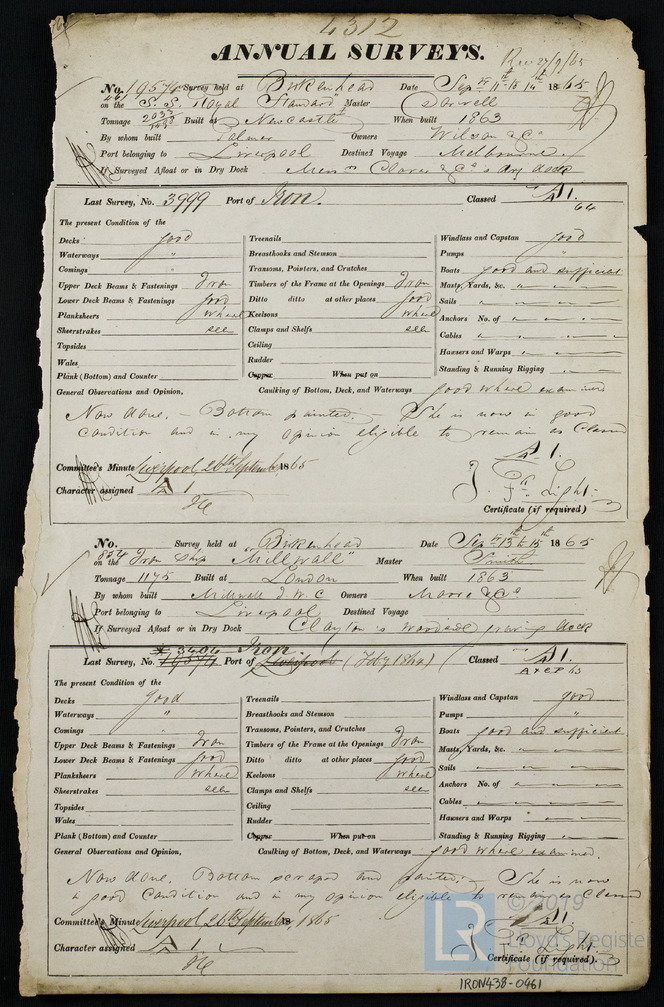 4312
ANNUAL SURVEYS.
Rec 27/9/65
No. 19574 Survey held at Birkenhead Date Sep 11th 13th 14th 1865
on the S.S. Royal Standard Master
Tonnage 2033 Built at Newcastle When built 1863
By whom built Palmer Owners Wilson & Co
Port belonging to Liverpool Destined Voyage Melbourne
If Surveyed Afloat or in Dry Dock Messrs Clover & Co's dry dock
Last Survey, No. 3999 Port of Iron. Classed A1.
64
The present Condition of the
Decks good Treenails Windlass and Capstan good
Waterways " Breasthooks and Stemson Pumps "
Comings " Transoms, Pointers, and Crutches Boats good and sufficient
Upper Deck Beams & Fastenings Iron Timbers of the Frame at the Openings Iron Masts, Yards, &c. "
Lower Deck Beams & Fastenings good Ditto ditto at other places good Sails "
Planksheers where Keelsons where Anchors No. of "
Sheerstrakes seen Clamps and Shelfs seen Cables "
Topsides Ceiling Hawsers and Warps "
Wales Rudder Standing & Running Rigging "
Plank (Bottom) and Counter Copper When put on
General Observations and Opinion, Caulking of Bottom, Deck, and Waterways good where examined
Now done. – Bottom painted. – She is now in good
condition and in my opinion eligible to remain as Classed
A1.
Committee's Minute Liverpool, 26th September 1865
Character assigned A1
Light
Certificate (if required)
No. Survey held at Birkenhead Date Sep 13th 15th 1865
on the Iron Ship "Millwall" Master Smith
Tonnage 1175 Built at London When built 1863
By whom built Millwall I W C Owners Moore & Co
Port belonging to Liverpool Destined Voyage
If Surveyed Afloat or in Dry Dock Clayton's Woodside graving dock
Last Survey, No. 3404 Port of Iron Liverpool (Feby 1864) Classed A1.
The present Condition of the
Decks good Treenails Windlass and Capstan good
Waterways " Breasthooks and Stemson Pumps "
Comings " Transoms, Pointers, and Crutches Boats good and sufficient
Upper Deck Beams & Fastenings Iron Timbers of the Frame at the Openings Iron Masts, Yards, &c. "
Lower Deck Beams & Fastenings good Ditto ditto at other places good Sails "
Planksheers where Keelsons where Anchors No. of "
Sheerstrakes seen Clamps and Shelfs seen Cables "
Topsides Ceiling Hawsers and Warps "
Wales Rudder Standing & Running Rigging "
Plank (Bottom) and Counter Copper When put on
General Observations and Opinion, Caulking of Bottom, Deck, and Waterways good where examined.
Now done. Bottom scraped and painted. – She is now
in good condition and in my opinion eligible to remain as Classed
A1.
Committee's Minute Liverpool 26th September, 1865
Character assigned A1
Light
Certificate (if required)
© 2019
LR Lloyd's Register
Foundation
IRON438-0461